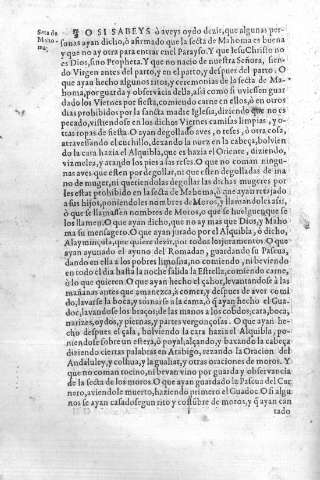 Seta de Mahoma.
O SI SABEYS ò aveys oydo dezir, que algunas personas ayan dicho, ò afirmado que la secta de Mahoma es buena
y que no ay otra para entrar en el Parayso. Y que Iesu Christo no
es Dios, sino Propheta. Y que no nacio de nuestra Señora, siendo
Virgen antes del parto, y en el parto, y despues del parto. O
que ayan hecho algunos ritos, y ceremonias de la secta de Mahoma,
por guarda y observācia della, assi como si uviessen guardado
los Viernes por fiesta, comiendo carne en ellos, ò en otros
dias prohibidos por la Sancta madre Iglesia, diziendo que no es
pecado, vistiendose en los dichos Viernes camisas limpias, y otras
ropas de fiesta. O ayan degollado aves, o reses, ò otra cosa,
atravessando el cuchillo, dexando la nuez en la cabeça, bolviendo
la cara hazia el Alquibla, que es hazia el Oriente, diziendo,
vizmelea, y atando los pies a las reses. O que no coman ningunas
aves que esten por degollar, ni que esten degolladas de mano
de muger, ni queriendolas degollar las dichas mugeres por
les estar prohibido en la secta de Mahoma, ò que ayan retajado
a sus hijos, poniendoles nombres de Moros, y llamandoles assi,
ò que se llamassen nombres de Moros, o que se huelguen que se
los llamen. O que ayan dicho, que no ay mas que Dios, y Mahoma
su mensagero. O que ayan jurado por el Alquibla, ò dicho,
Alayminzula, que quiere dezir, por todos los juramentos. O que
ayan ayunado el ayuno del Romadan, guardando su Pascua,
dando en ella a los pobres limosna, no comiendo, ni beviendo
en todo el dia hasta la noche salida la Estrella, comiendo carne,
ò lo que quieren. O que ayan hecho el çahor, levantandose à las
mañanas antes que amanezca, à comer, y despues de aver comido,
lavarse la boca, y tornarse a la cama, ò q̃ ayan hecho el Guadoc,
lavandose los braços, de las manos a los cobdos, cara, boca,
narizes, oydos, y piernas, y partes vergonçosas. O que ayan hecho
despues el çala, bolviendo la cara hazia el Alquibla, poniendose
sobre un estera, ò poyal, alçando, y baxando la cabeça
diziendo ciertas palabras en Arabigo, rezando la Oracion del
Andaluley, y colhua, y laguahat, y otras oraciones de moros. Y
que no coman tocino, ni bevan vino por guarda y observancia
de la secta de los moros. O que ayan guardado la Pascua del Carnero,
aviendole muerto, haziendo primero el Guadoc. O si algunos
se ayan casado segun rito y costūbre de moros, y q̃ ayan cantado